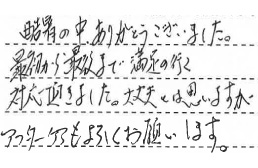 酷暑の中、ありがとうございました。
最初から最後まで満足の行く
対応頂きました。大丈夫とは思いますが
アフターケアもよろしくお願いします。